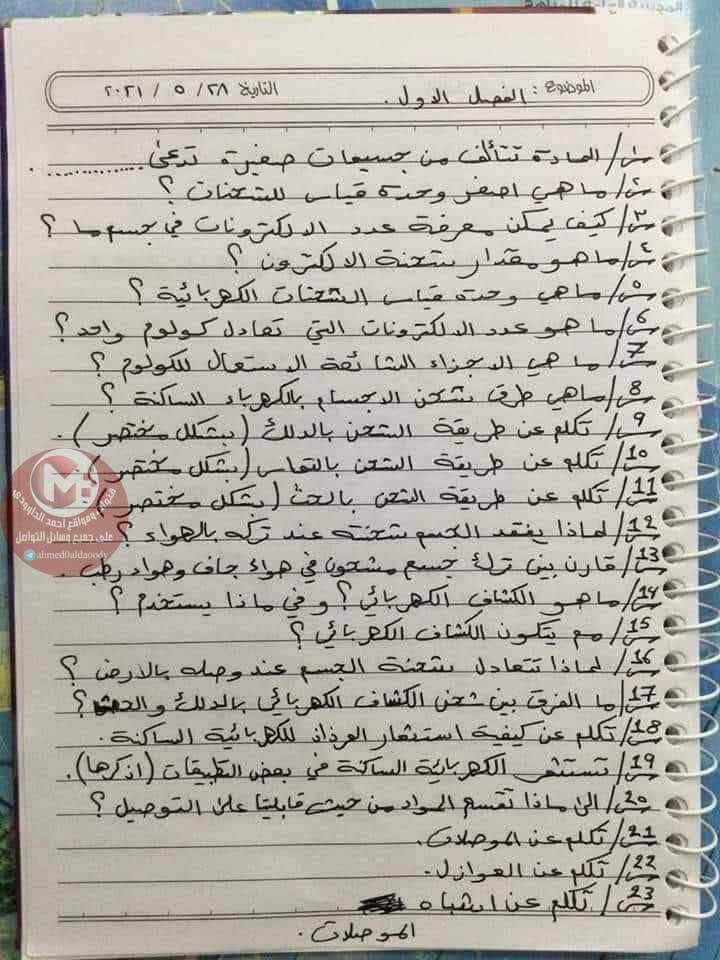 الموضوع : الفصل الاول . التاريخ ٢٨ / ٥ / ٢٠٢١
س١/ المادة تتألف من جسيمات صغيرة تدعى ..............
س٢/ ما هي اصغر وحدة قياس للشحنات ؟
س٣/ كيف يمكن معرفة عدد الالكترونات في جسم ما ؟
س٤/ ما هو مقدار شحنة الالكترون ؟
س٥/ ما هي وحدة قياس الشحنات الكهربائية ؟
س6/ ما هو عدد الالكترونات التي تعادل كولوم واحد ؟
س7/ ما هي الاجزاء الشائعة الاستعمال للكولوم ؟
س8/ ماهي طرق شحن الاجسام بالكهرباء الساكنة ؟
س9/ تكلم عن طريقة الشحن بالدلك (بشكل مختصر).
س10/ تكلم عن طريقة الشحن بالتماس (بشكل مختصر).
س11/ تكلم عن طريقة الشحن بالحث (بشكل مختصر)
س12/ لماذا يفقد الجسم شحنته عند تركه بالهواء ؟
س13/ قارن بين ترك جسم مشحون في هواء جاف وهواء رطب .
س14/ ما هو الكشاف الكهربائي ؟ وفي ماذا يستخدم ؟
س15/ مم يتكون الكشاف الكهربائي ؟
س16/ لماذا تتعادل شحنة الجسم عند وصله بالارض ؟
س17/ ما الفرق بين شحن الكشاف الكهربائي بالدلك والحث ؟
س18/ تكلم عن كيفية استثمار الرذاذ للكهربائية الساكنة .
س19/ تستثمر الكهربائية الساكنة في بعض التطبيقات (اذكرها).
س20/ الى ماذا تقسم المواد من حيث قابليتها على التوصيل ؟
س21/ تكلم عن الموصلات .
س22/ تكلم عن العوازل .
س23/ تكلم عن اشباه
الموصلات .
M
قنوات ومواقع احمد الداوودي
على جميع وسائل التواصل
@ahmed0aldaoody